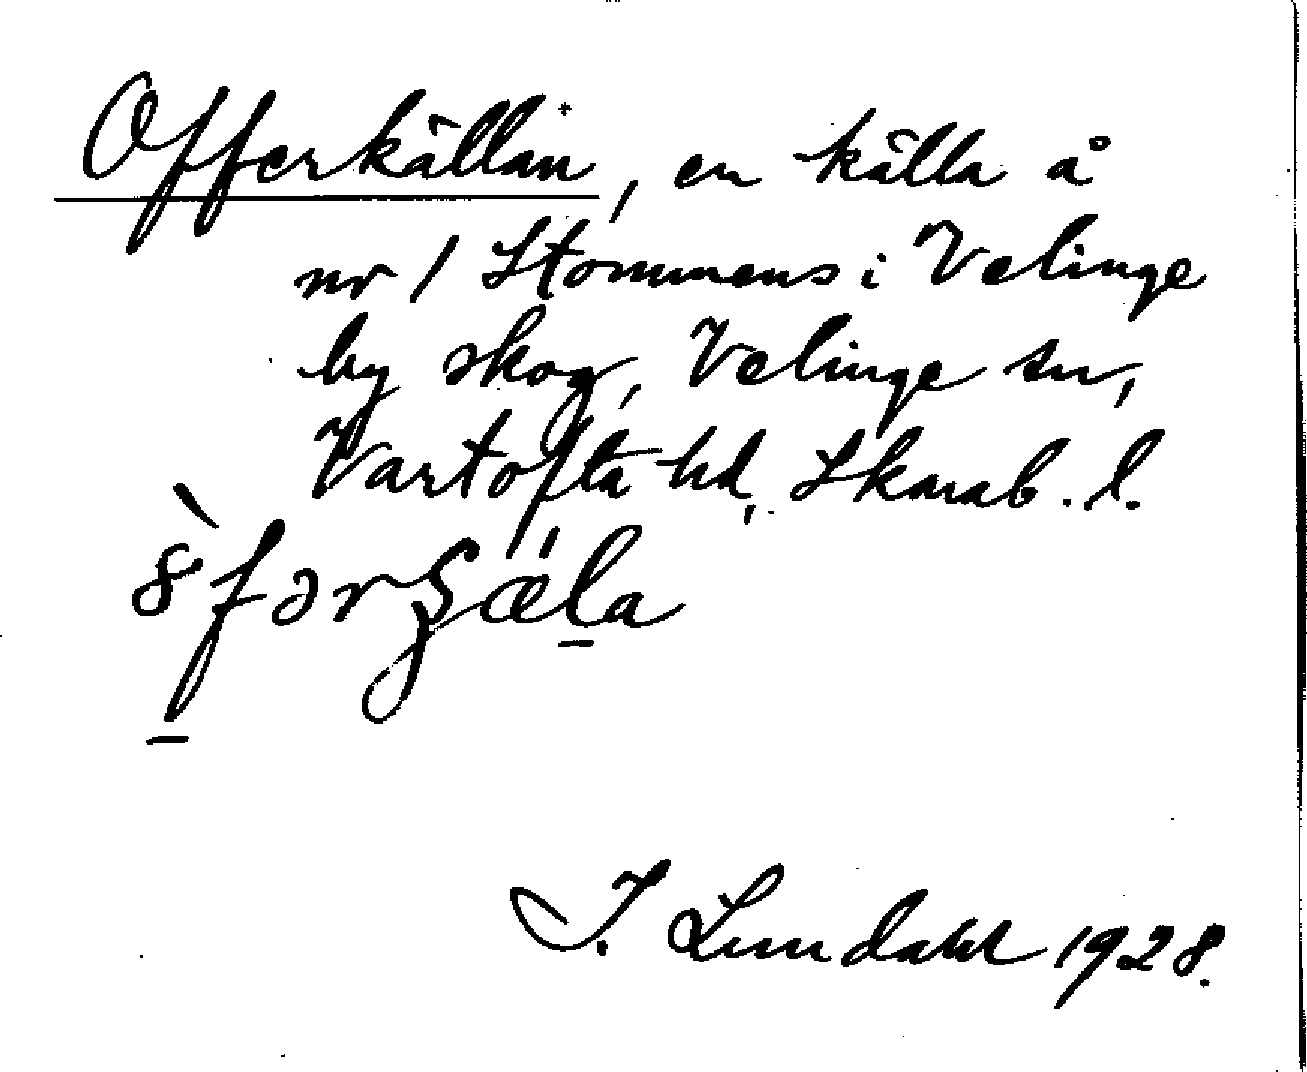 Offerkällan⁺, en källa å
nr 1 Stommens i Velinge
by skog, Velinge sn,
Vartofta hd, Skarab. l.
I. Lundahl 1928.